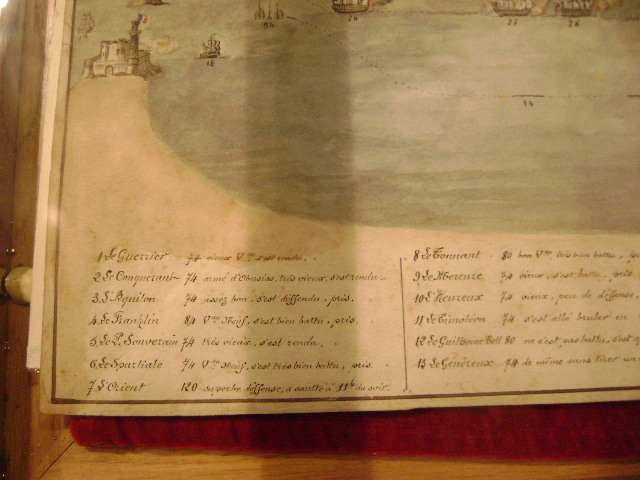 18
24
26
25
26
34
1 Le Guerrier 74 vieux Vau s'est rendu.
2 Le Conquérant 74 armé d'Obusias, très vieux, s'est rendu.
3 L'Aquilon 74 assez bon, s'est deffendu, pris.
4 Le Franklin 84 Vau Neuf, s'est bien battu, pris.
5 Le P. Souverain 74 très vieux, s'est rendu.
6 Le Spartiate 74 Vau Neuf, s'est très bien battu, pris.
7 L'Orient 120 superbe déffense, a sauté à 11h du soir.
8 Le Tonnant 80 bon Vau, très bien battu,
9 Le Mercure 74 vieux, s'est battu, pris.
10 L'Heureux 74 vieux, peu de déffense,
11 Le Timoléon 74 s'est allé bruler en
12 Le Guillaume Tell 80 ne s'est pas battu, s'est
13 Le Généreux 74 de même sans tirer un